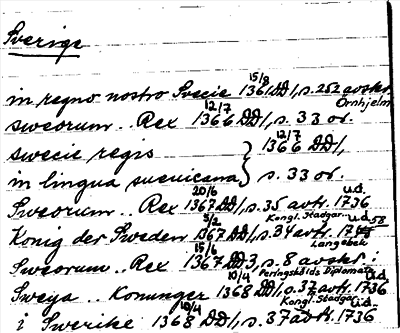 Sverige
in regno nostro Svecie 15/8 1361 DD1, s. 252 avskr. Örnhjelm
sweorum .. Rex 12/7 1366 DD1, s. 33 or.
swecie regis } 12/7 1366 DD1,
in lingua suevicana } s. 33 or.
Sweorum .. Rex 20/6 1367 DD1, s. 35 avtr. u.d. 1736
König der Sweden 5/2 1367 DD1, s. 34 avtr. Kongl. Stadgar u.d. 58 Langebek
Sweorum .. Rex 15/6 1367 DD3, s. 8 avskr. i Peringskölds Diplomata
Sweya .. Konunger 10/4 1368 DD1, s. 37 avtr. u.d. 1736
i Swerike 10/4 1368 DD1, s. 37 avtr. Kongl. Stadgar u.d. 1736